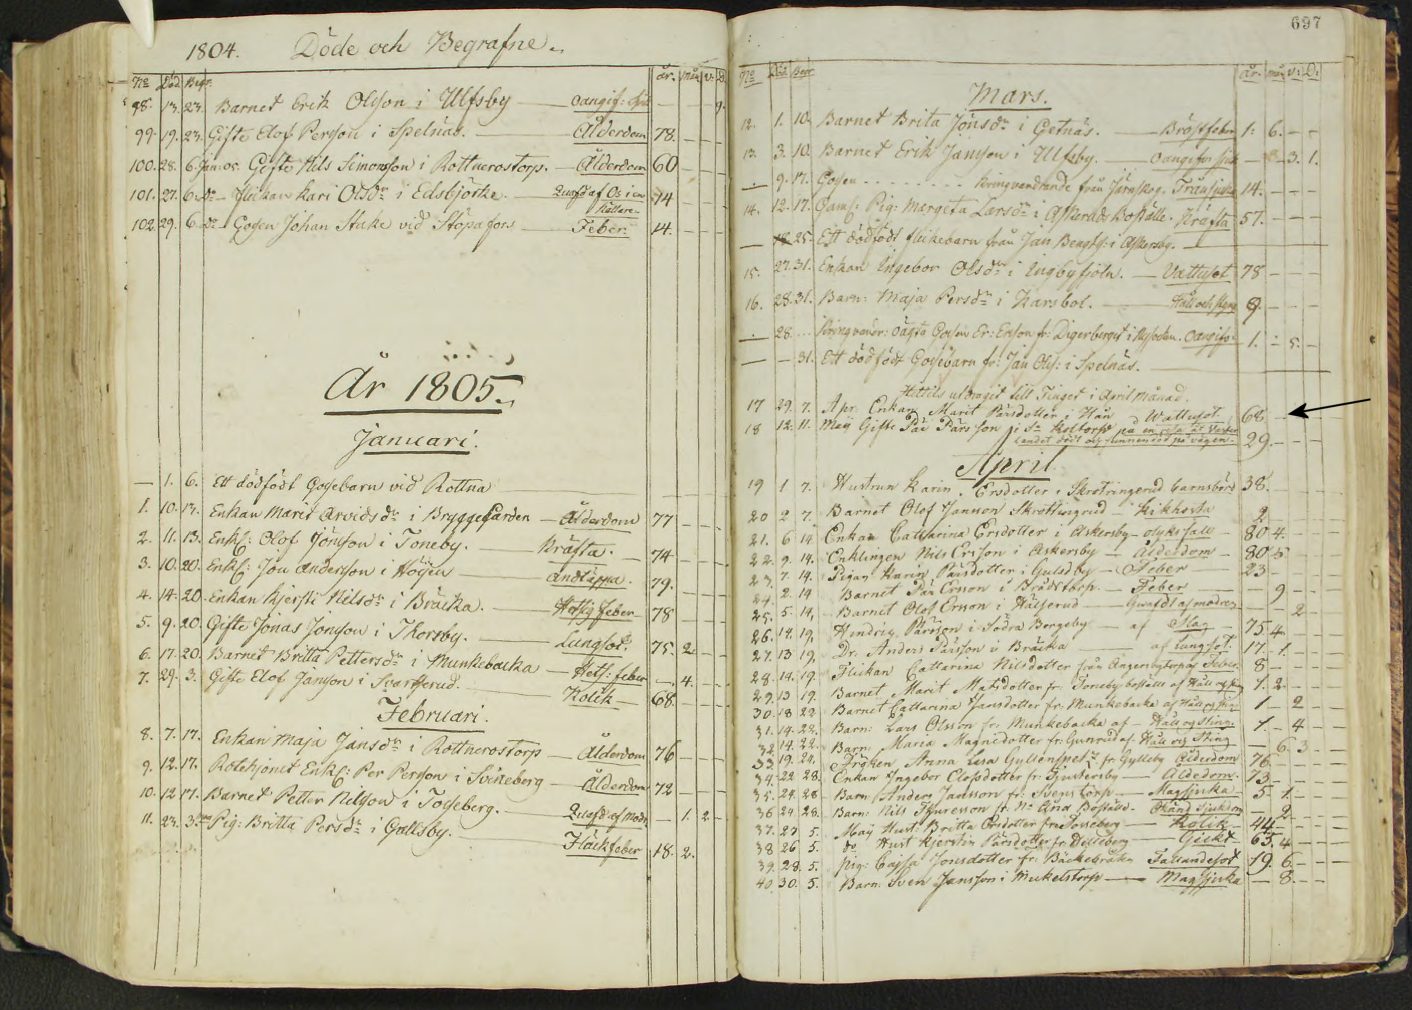 697
1804. Döde och Begrafne.
No Död Begr. år. mån v. D.
98. 13. 23. Barnet Erik Olsson i Ulfsby — oangif: sjuk — — — 9.
99. 19. 23. Gifte Elof Persson i Spelnäs. — Ålderdom 78. — — —
100. 28. 6 Jan: 05. Gifte Nils Simonsson i Rottnerostorp. — Ålderdom 60 — — —
101. 27. 6. do — Flickan Kari Olsdr i Edsbjörke. — Qvafd af Os i en 74 — — —
Källare.
102. 29. 6. do — Gossen Johan Stake vid Stöpafors — Feber. 14. — — —
År 1805.
Januari.
— 1. 6. Ett dödfödt Gossebarn vid Rottna — — — —
1. 10. 13. Enkan Marit Arvidsdr i Bryggegården — Ålderdom 77 — — —
2. 11. 13. Enkl: Olof Jönsson i Toneby. — Kräfta. 74 — — —
3. 10. 20. Enkl: Jon Andersson i Höjen — Andtäppa. 79. — — —
4. 14. 20. Enkan Kjersti Nilsdr i Bräcka. — Hetsig feber 78 — — —
5. 9. 20. Gifte Jonas Jonsson i Thorsby. — Lungsot. 75. 2. — —
6. 17. 20. Barnet Britta Pettersdr i Munkebacka — Hets: feber — 4. — —
7. 29. 3. Gifte Elof Jansson i Svartterud. — Kolik — 68. — — —
Februari.
8. 7. 17. Enkan Maja Jansdr i Rottnerostorp — Ålderdom 76 — — —
9. 12. 17. Rotehjonet Enkl: Per Persson i Svineberg — Ålderdom 72 — — —
10. 12. 17. Barnet Petter Nilsson i Tosseberg. — Qvafd af Modr. — 1. 2 —
11. 23. 3. Pig: Britta Persdr i Gräsby. — Fläckfeber 18. 2. — —
No Död Begr. år. mån v: D.
Mars.
12. 1. 10. Barnet Brita Jönsdr i Getnäs. — Bröstfeber 1: 6. — —
13. 3. 10. Barnet Erik Jansson i Ulfsby. — oangifven sjuk — 3. 1.
— 9. 17. Gossen . . . . . . Kringvandrande från Järnskog. Trånsjuka 14. — — —
14. 12. 17. Gaml: Pig: Margeta Larsdr i Askersby Boställe. Kräfta 57. — — —
— 18. 25. Ett dödfödt flickebarn från Jan Bengts: i Askersby. —
15. 27. 31. Enkan Ingebor Olsdr i Ingbyfjoln. — Vattusot 78 — — —
16. 28. 31. Barn: Maja Persdr i Karsbol. — Håll och styng 9. — — —
— 28. . . . Kringvandr: oäkta Gossen Er: Ersson fr: Digerberget i Nyskoln. Oangifv: 1. — 5. —
— — 31. Ett dödfödt Gossebarn fr: Jan Ols: i Spelnäs. —
Hittils utdraget till Tinget i April Månad.
17 29. 7. Apr. Enkan Marit Pärsdotter i Hån — Wattusot. 68. — — —
18 12. 11. Maij Gifte Pär Pärsson i Sn Koltorp på en resa åt Vester
landet dödt och funnen död på vägen. 29. — — —
April.
19 1 7. Hustrun Karin Ersdotter i Skrötringerud barnsbörd 38. — — —
20 2 7. Barnet Olof Jansson Skröttengrud — Kikhosta 2 — — —
21. 6 14. Enkan Cattarina Ersdotter i Askersby — olyksfall — 80 4. — —
22. 9. 14. Enklingen Nils Ersson i Askersby — Ålderdom — 80 5 — —
23. 7. 14. Pigan Karin Pärsdotter i Gulsby — Feber — 23 — — —
24. 2. 14 Barnet Pär Erson i Prästtorp — Feber — — 9 — —
25. 5. 14. Barnet Olof Erson i Hälserud — Qwafdt af modren — — 2 —
26. 14. 19. Hindrig Pärsson i Södra Borgeby — af Slag — 75 4. — —
27. 13 19. Dr. Anders Pärsson i Bräcka — af Lungsot. 17. 1. — —
28. 14. 19. Flickan Cattarina Nilsdotter från Ängersbytorp af Feber. 8 — — —
29. 13 19. Barnet Marit Matsdotter fr. Toneby boställe af Håll og sting 1. 2 — —
30. 18 22 Barnet Cattarina Jansdotter fr. Munkebacka af Håll og sting 1 — 2 —
31. 14. 22. Barn: Lars Olsson fr. Munkebacka af — Håll og Sting. 1. — 4 —
32. 14. 22. Barn Maria Magnidotter fr. Gunrud af. Håll og Sting — 6. 3 —
33 19. 24. Fröken Anna Lisa Gyllenspetz fr. Gylleby Ålderdom 76. — — —
34. 22 28. Enkan Ingebor Elofsdotter fr. Gustersby — Åldedom. 73 — — —
35. 24. 28. Barn Anders Jansson fr. Svenstorp — Magsjuka 5 1. — —
36 24. 28. Barn: Nils — Okänd Sjukdom — 2 — —
37. 27 5. Maij Hust: Britta Ersdotter fr. Tosseberg — Kolik 44. — — —
38 26 5. do Hust Kjerstin Pärsdotter fr. Delleberg — Gickt — 63. 4. — —
39. 28. 5. Pig: Cajsa Jonsdotter fr. Bäckebråten Fallandesot 19. 6. — —
40. 30. 5. Barn. Sven Jansson i Mickelstorp — Magsjuka — 8. — —